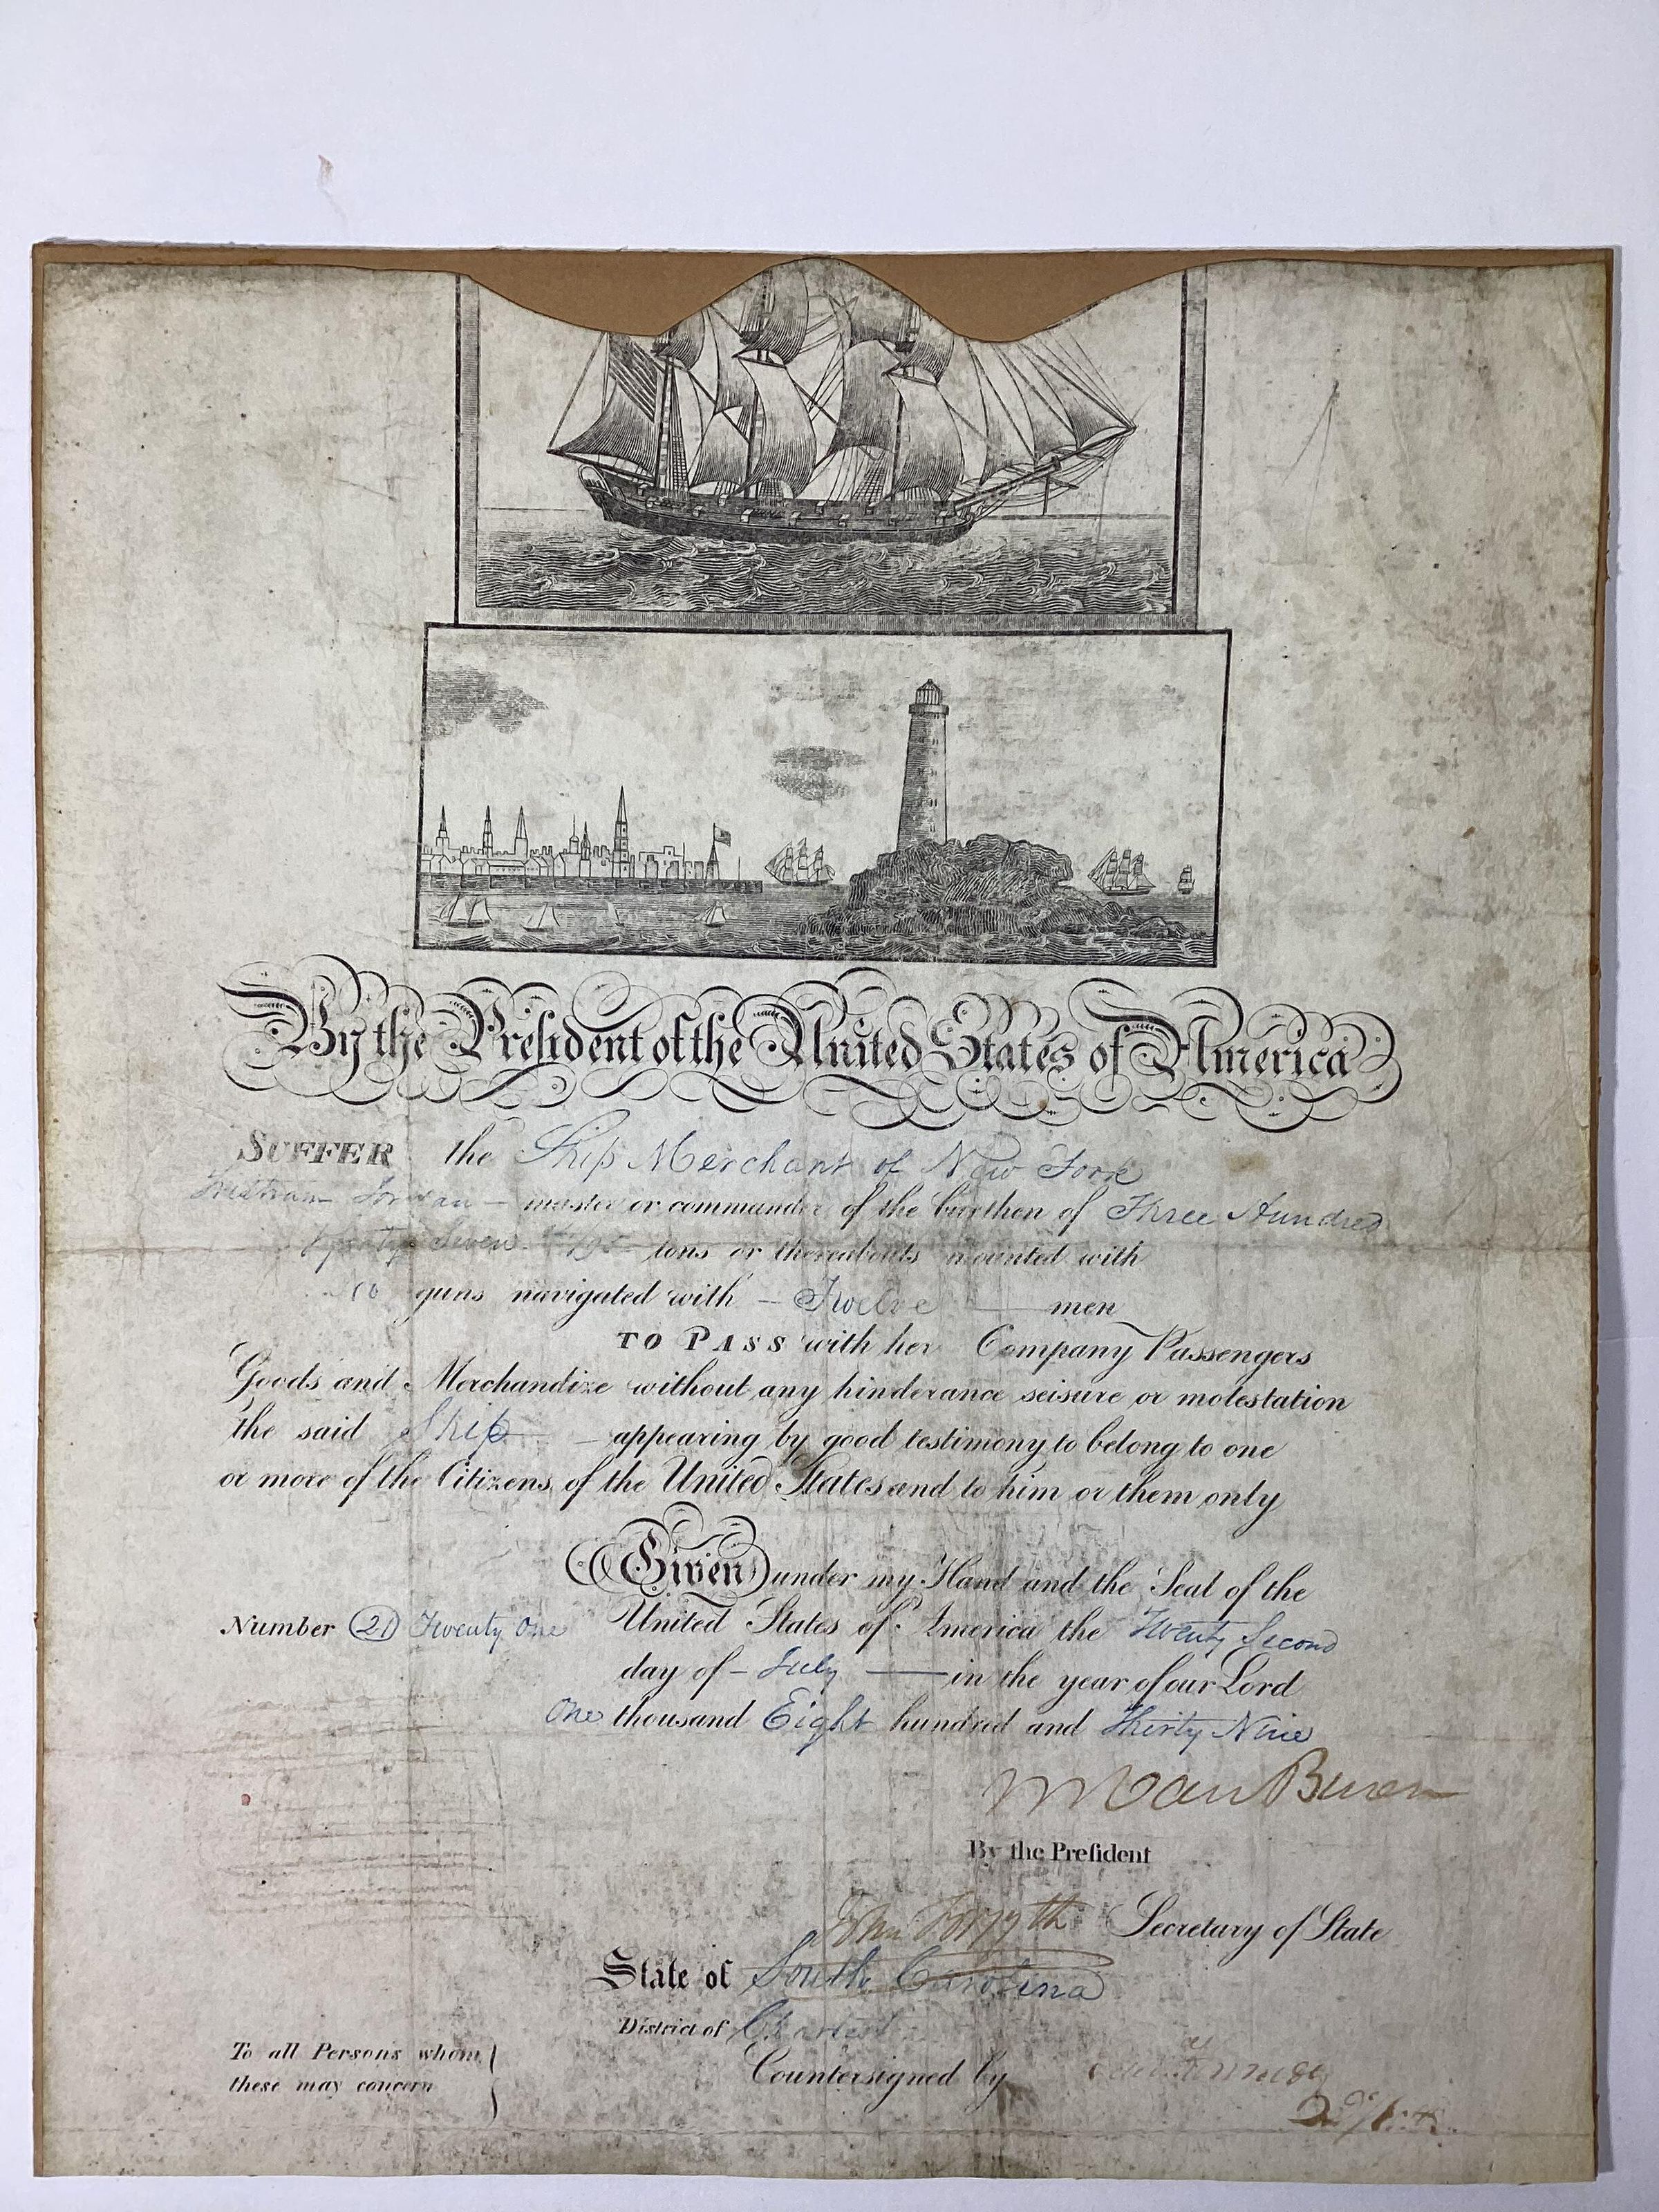 By the President of the United States of America
SUFFER the Ship Merchant of New York
Tristram Jordan – master or commander of the burthen of Three Hundred
Seven tons or thereabouts mounted with
no guns navigated with – Twelve — men
TO PASS with her Company Passengers
Goods and Merchandize without any hinderance seisure or molestation
the said Ship — appearing by good testimony to belong to one
or more of the Citizens of the United States and to him or them only
Given under my Hand and the Seal of the
Number 21 Twenty One United States of America the Twenty Second
day of – July — in the year of our Lord
One thousand Eight hundred and Thirty Nine
M Van Buren
By the Preſident
John Forsyth Secretary of State
State of South Carolina
District of Charleston
To all Persons whom
these may concern
Countersigned by